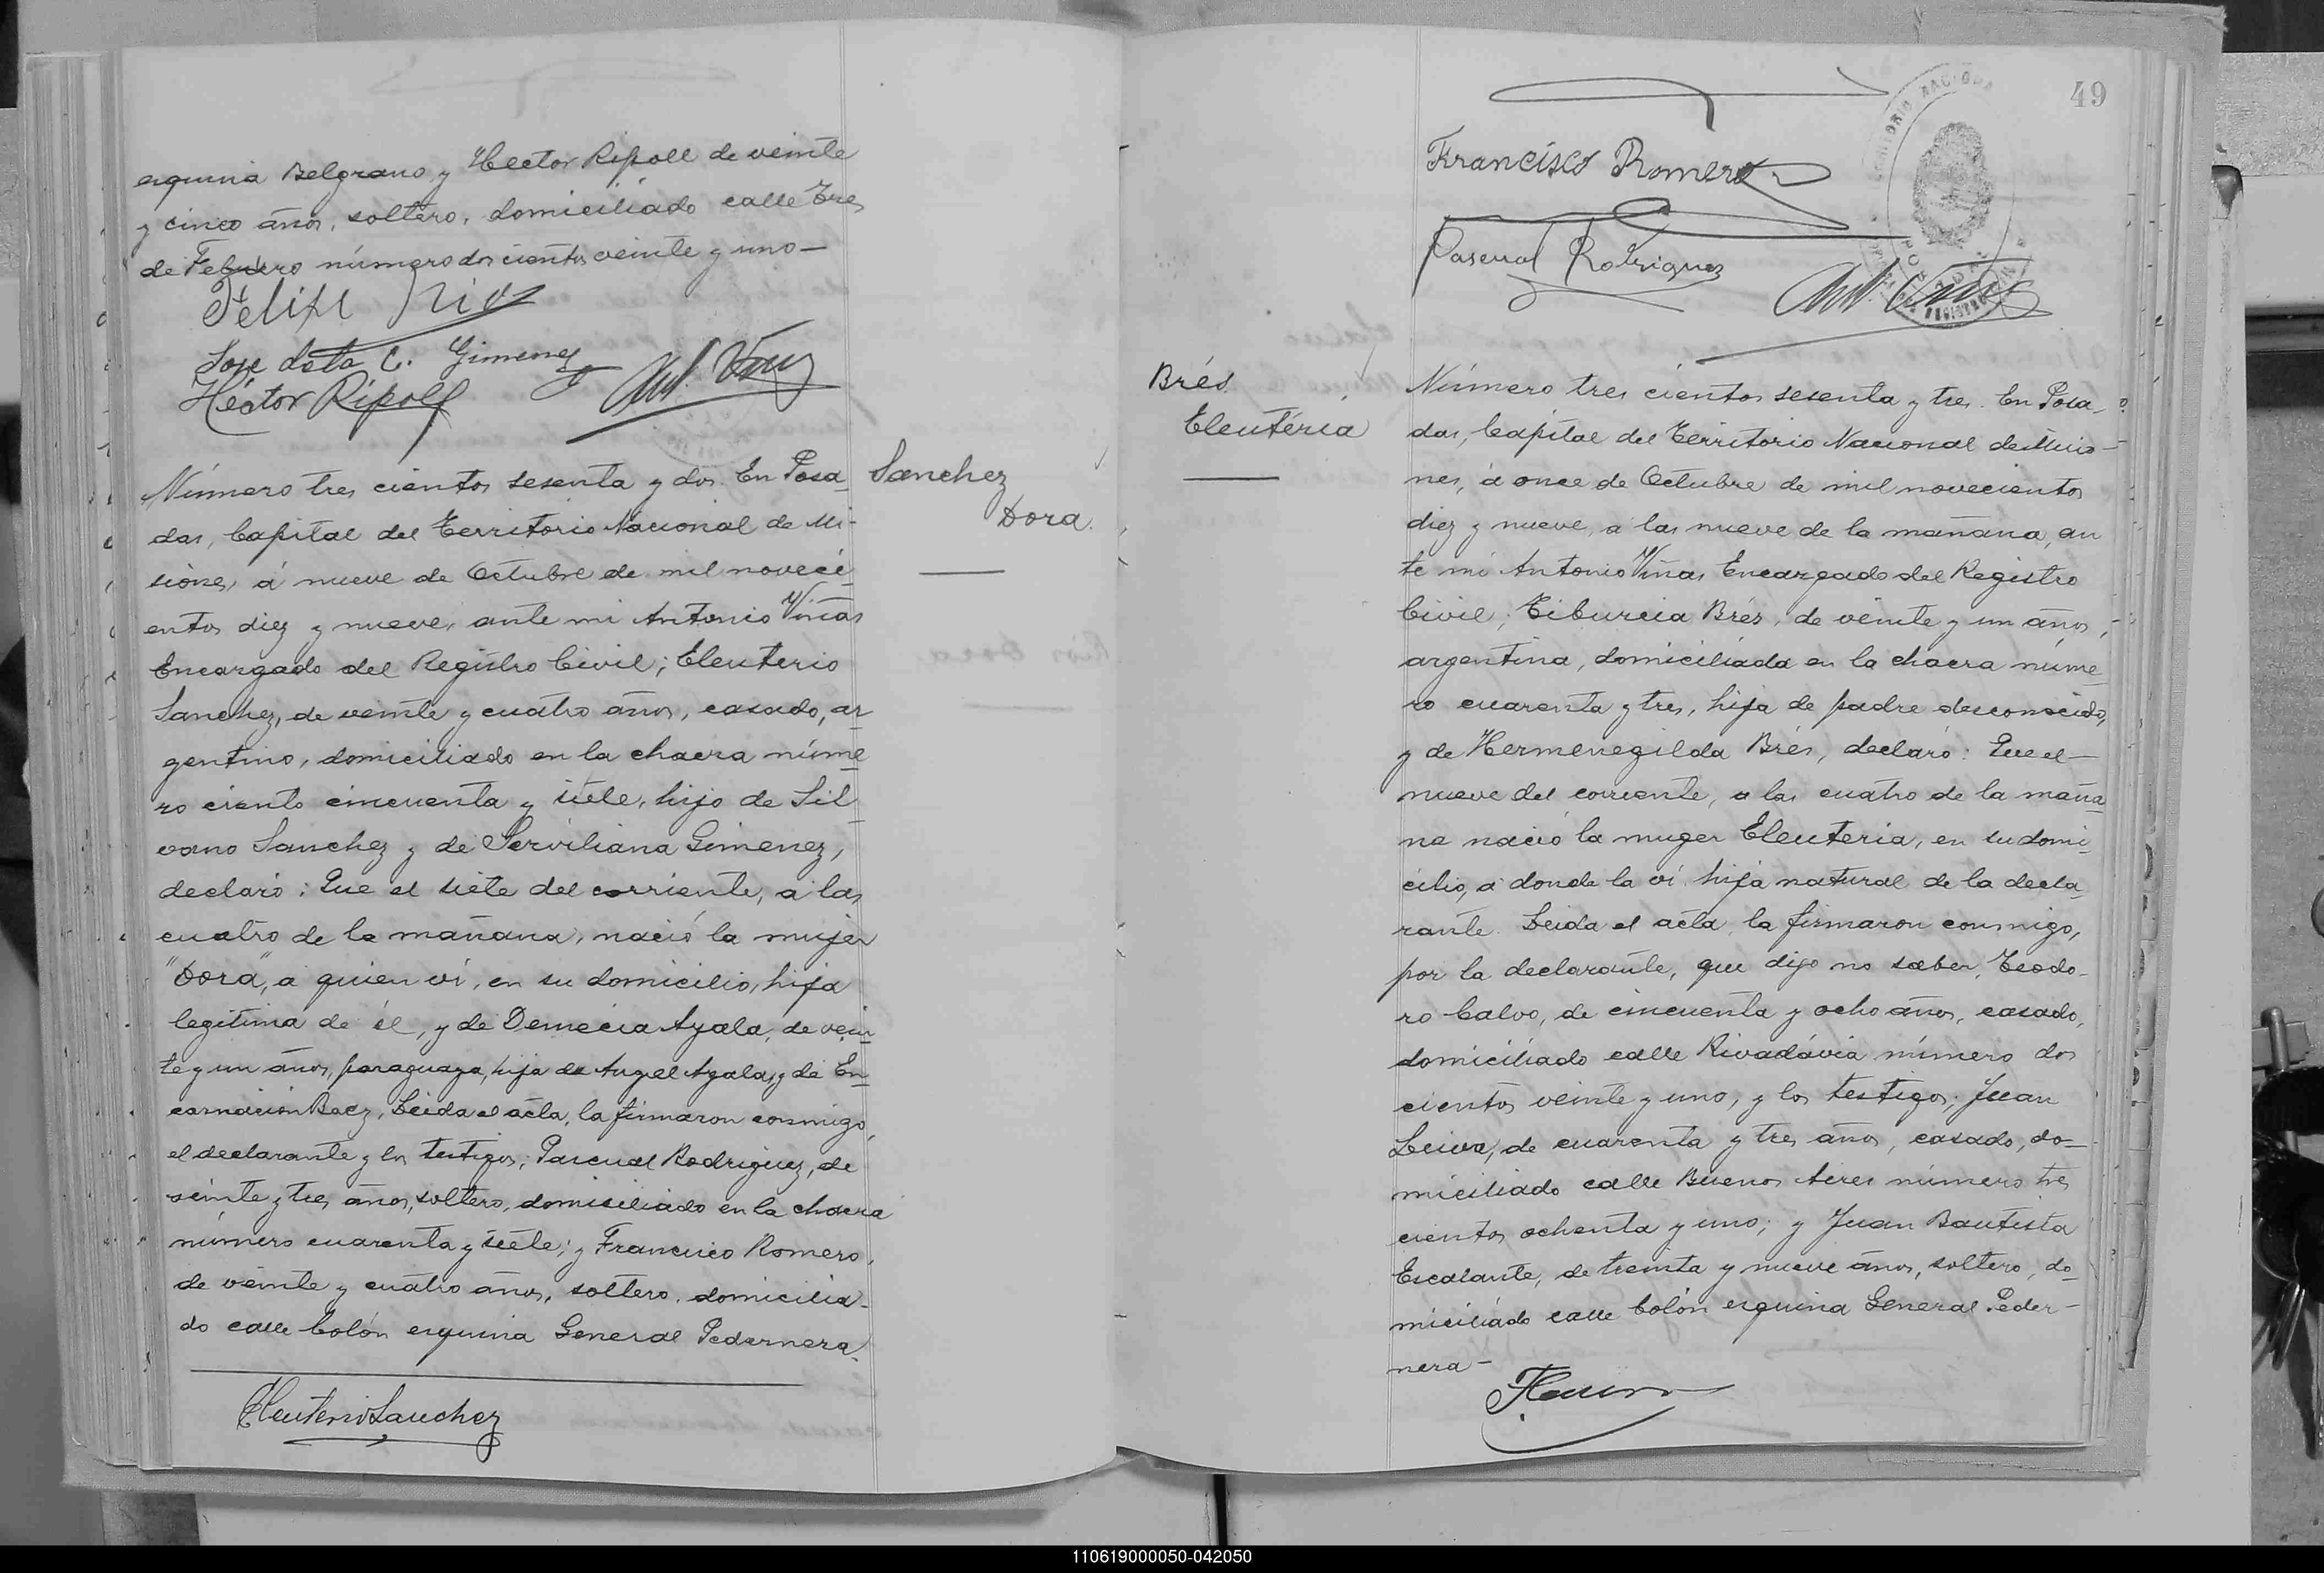 esquina Belgrano y Hector Ripoll de veinte
y cinco años, soltero, domiciliado calle Tres
de Febrero número dos cientos veinte y uno—
Felipe Rios
Jose dsta C. Gimenez
Héctor Ripoll
Ant. Viñas
Número tres cientos sesenta y dos. En Posa
das, Capital del Territorio Nacional de Mi-
siones, á nueve de Octubre de mil noveci
entos diez y nueve, ante mi Antonio Viñas
Encargado del Registro Civil; Eleuterio
Sanchez, de veinte y cuatro años, casado, ar
gentino, domiciliado en la chacra núme
ro ciento cincuenta y siete, hijo de Sil
vano Sanchez y de Serviliana Gimenez,
declaró: Que el siete del corriente, a las
cuatro de la mañana, nació la mujer
"Dora", a quien vi, en su domicilio, hija
legitima de él, y de Demecia Ayala, de vein
te y un años, paraguaya, hija de Angel Ayala, y de En
carnación Baez, Leida el acta, la firmaron conmigo,
el declarante y los testigos; Pascual Rodriguez, de
veinte y tres años, soltero, domiciliado en la chacra
número cuarenta y siete; y Francisco Romero,
de veinte y cuatro años, soltero, domicilia-
do calle Colón esquina General Pedernera.
Eleuterio Sanchez
Sanchez
Dora.
49
Francisco Romero
Pascual Rodriguez
Ant. Viñas
Brés
Eleutéria
Número tres cientos sesenta y tres. En Posa-
das, Capital del Territorio Nacional de Misio-
nes, á once de Octubre de mil novecientos
diez y nueve, a las nueve de la mañana, an
te mi Antonio Viñas Encargado del Registro
Civil; Tiburcia Brés, de veinte y un años,
argentina, domiciliada en la chacra núme
ro cuarenta y tres, hija de padre desconocido,
y de Hermenegilda Brés, declaró: Que el—
nueve del corriente, a las cuatro de la maña
na nació la muger Eleuteria, en su domi
cilio, a donde la vi hija natural de la decla
rante. Leida el acta, la firmaron conmigo,
por la declarante, que dijo no saber, Teodo-
ro Calvo, de cincuenta y ocho años, casado,
domiciliado calle Rivadávia número dos
cientos veinte y uno, y los testigos; Juan
Leiva, de cuarenta y tres años, casado, do—
miciliado calle Buenos Aires número tres
cientos ochenta y uno; y Juan Bautista
Escalante, de treinta y nueve años, soltero, do
miciliado calle Colón esquina General Peder-
nera—
110619000050-042050